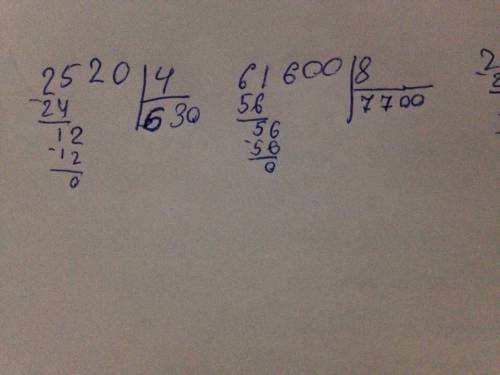 2520 | 4
-24 | 630
12
-12
0
61600 | 8
56 | 7700
56
-56
0
2